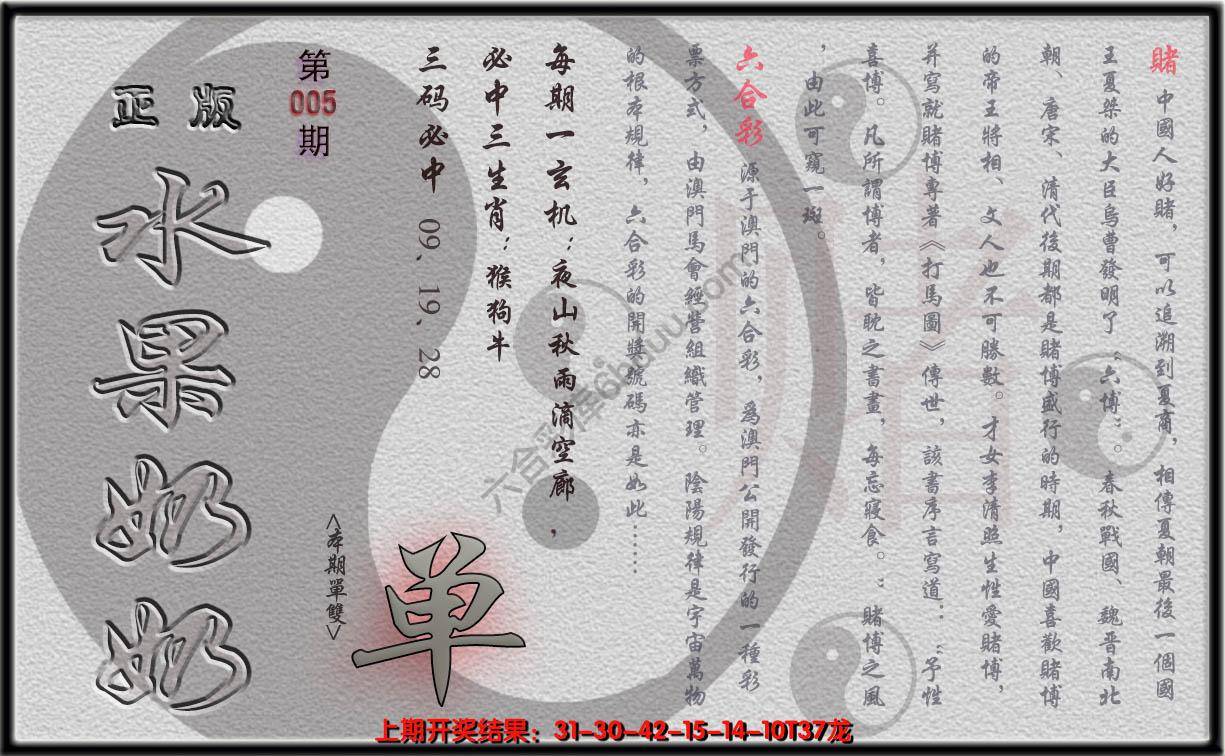 賭 中國人好賭，可以追溯到夏商，相傳夏朝最後一個國
王夏桀的大臣烏曹發明了“六博”。春秋戰國、魏晋南北
朝、唐宋、清代後期都是賭博盛行的時期，中國喜歡賭博
的帝王將相、文人也不可勝數。才女李清照生性愛賭博，
并寫就賭博專著《打馬圖》傳世，該書序言寫道：“予性
喜博。凡所謂博者，皆耽之書畫，每忘寢食。”賭博之風
，由此可窺一斑。
六合彩 源于澳門的六合彩，爲澳門公開發行的一種彩
票方式，由澳門馬會經營組織管理。陰陽規律是宇宙萬物
的根本規律，六合彩的開獎號碼亦是如此……
每期一玄机：夜山秋雨滴空廊，
必中三生肖：猴狗牛
三码必中 09、19、28
第005期
正版
水果奶奶
<本期單雙>
单
六合彩库6huuu.com
賭
上期开奖结果：31-30-42-15-14-10T37龙